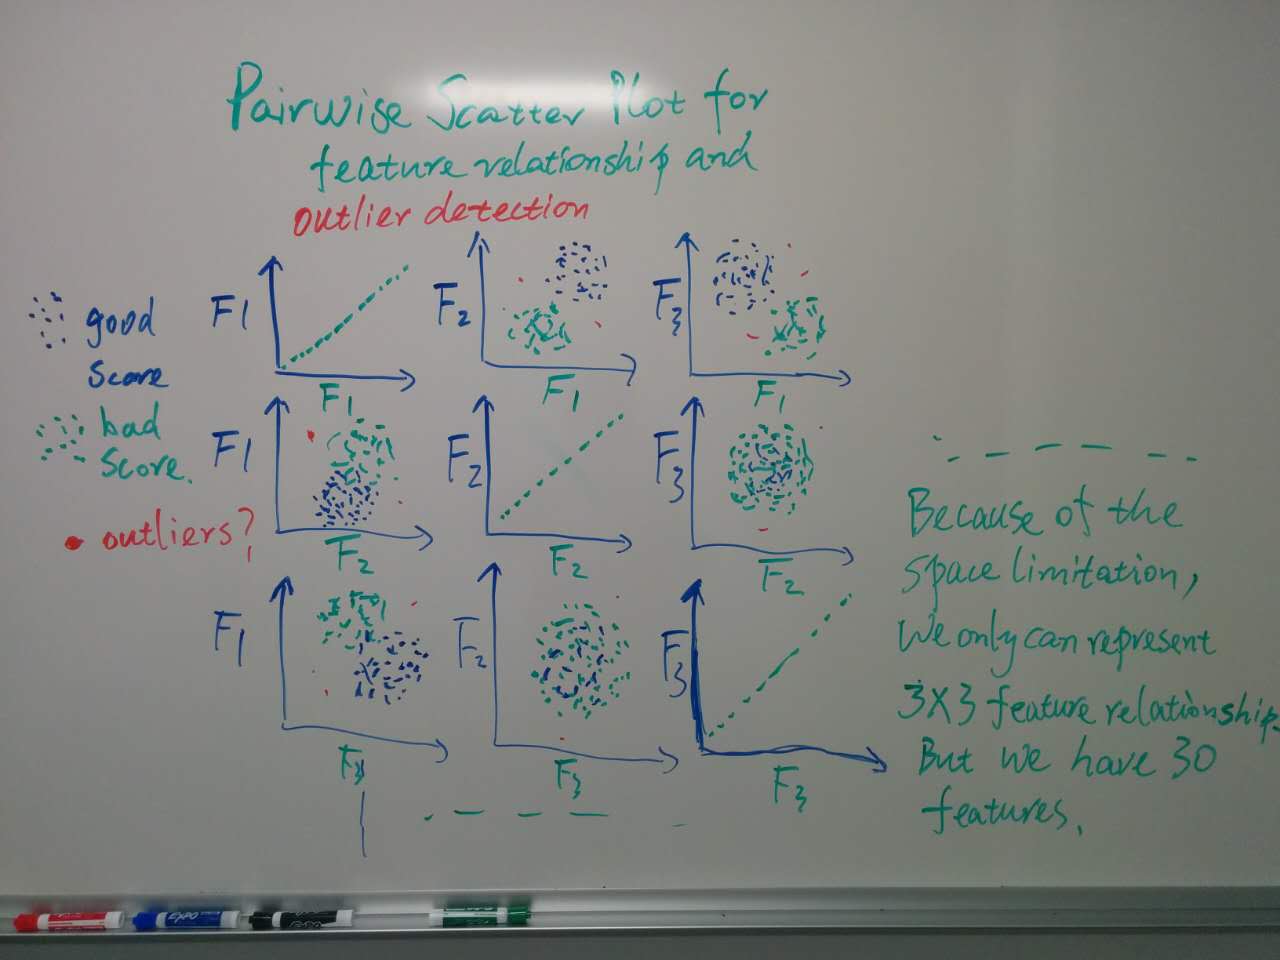 Pairwise Scatter Plot for
feature relationship and
outlier detection
good
score
bad
score.
outliers?
F1
F1
F2
F1
F3
F1
F1
F2
F2
F2
F3
F2
F1
F3
F2
F3
F3
F3
Because of the
space limitation,
We only can represent
3X3 feature relationship.
But we have 30
features.
EXPO